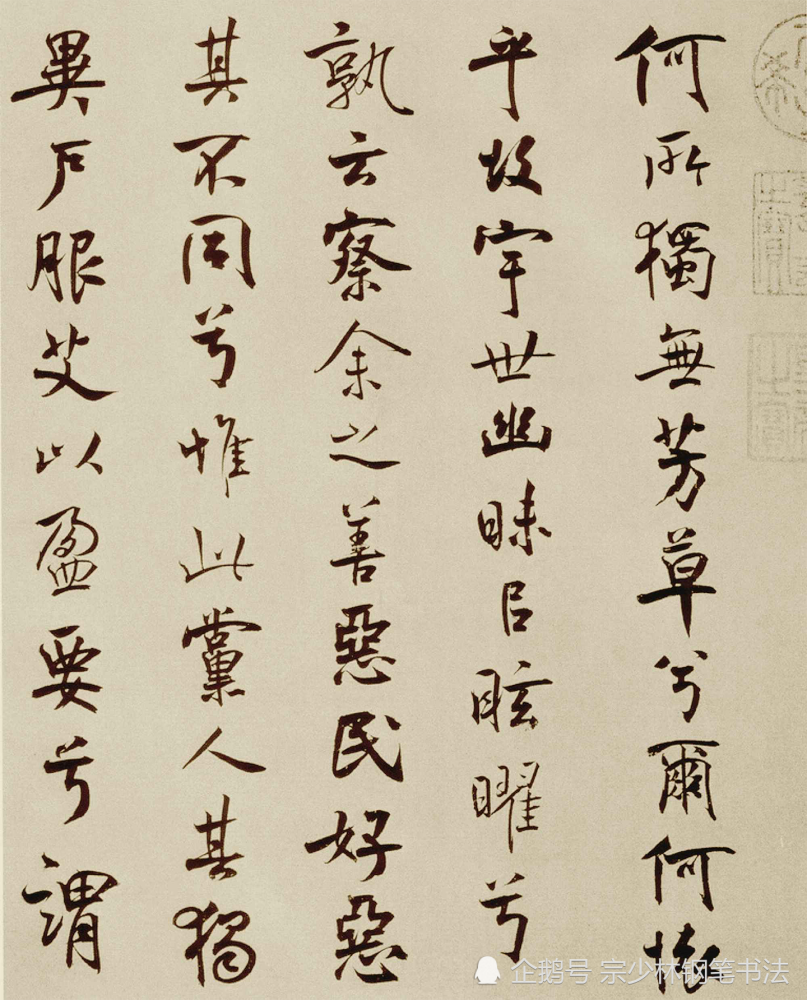 何所獨無芳草兮爾何懷
乎故宇世幽昧㠯眩曜兮
孰云察余之善惡民好惡
其不同兮惟此黨人其獨
異戶服艾以盈要兮謂
企鹅号 宗少林钢笔书法